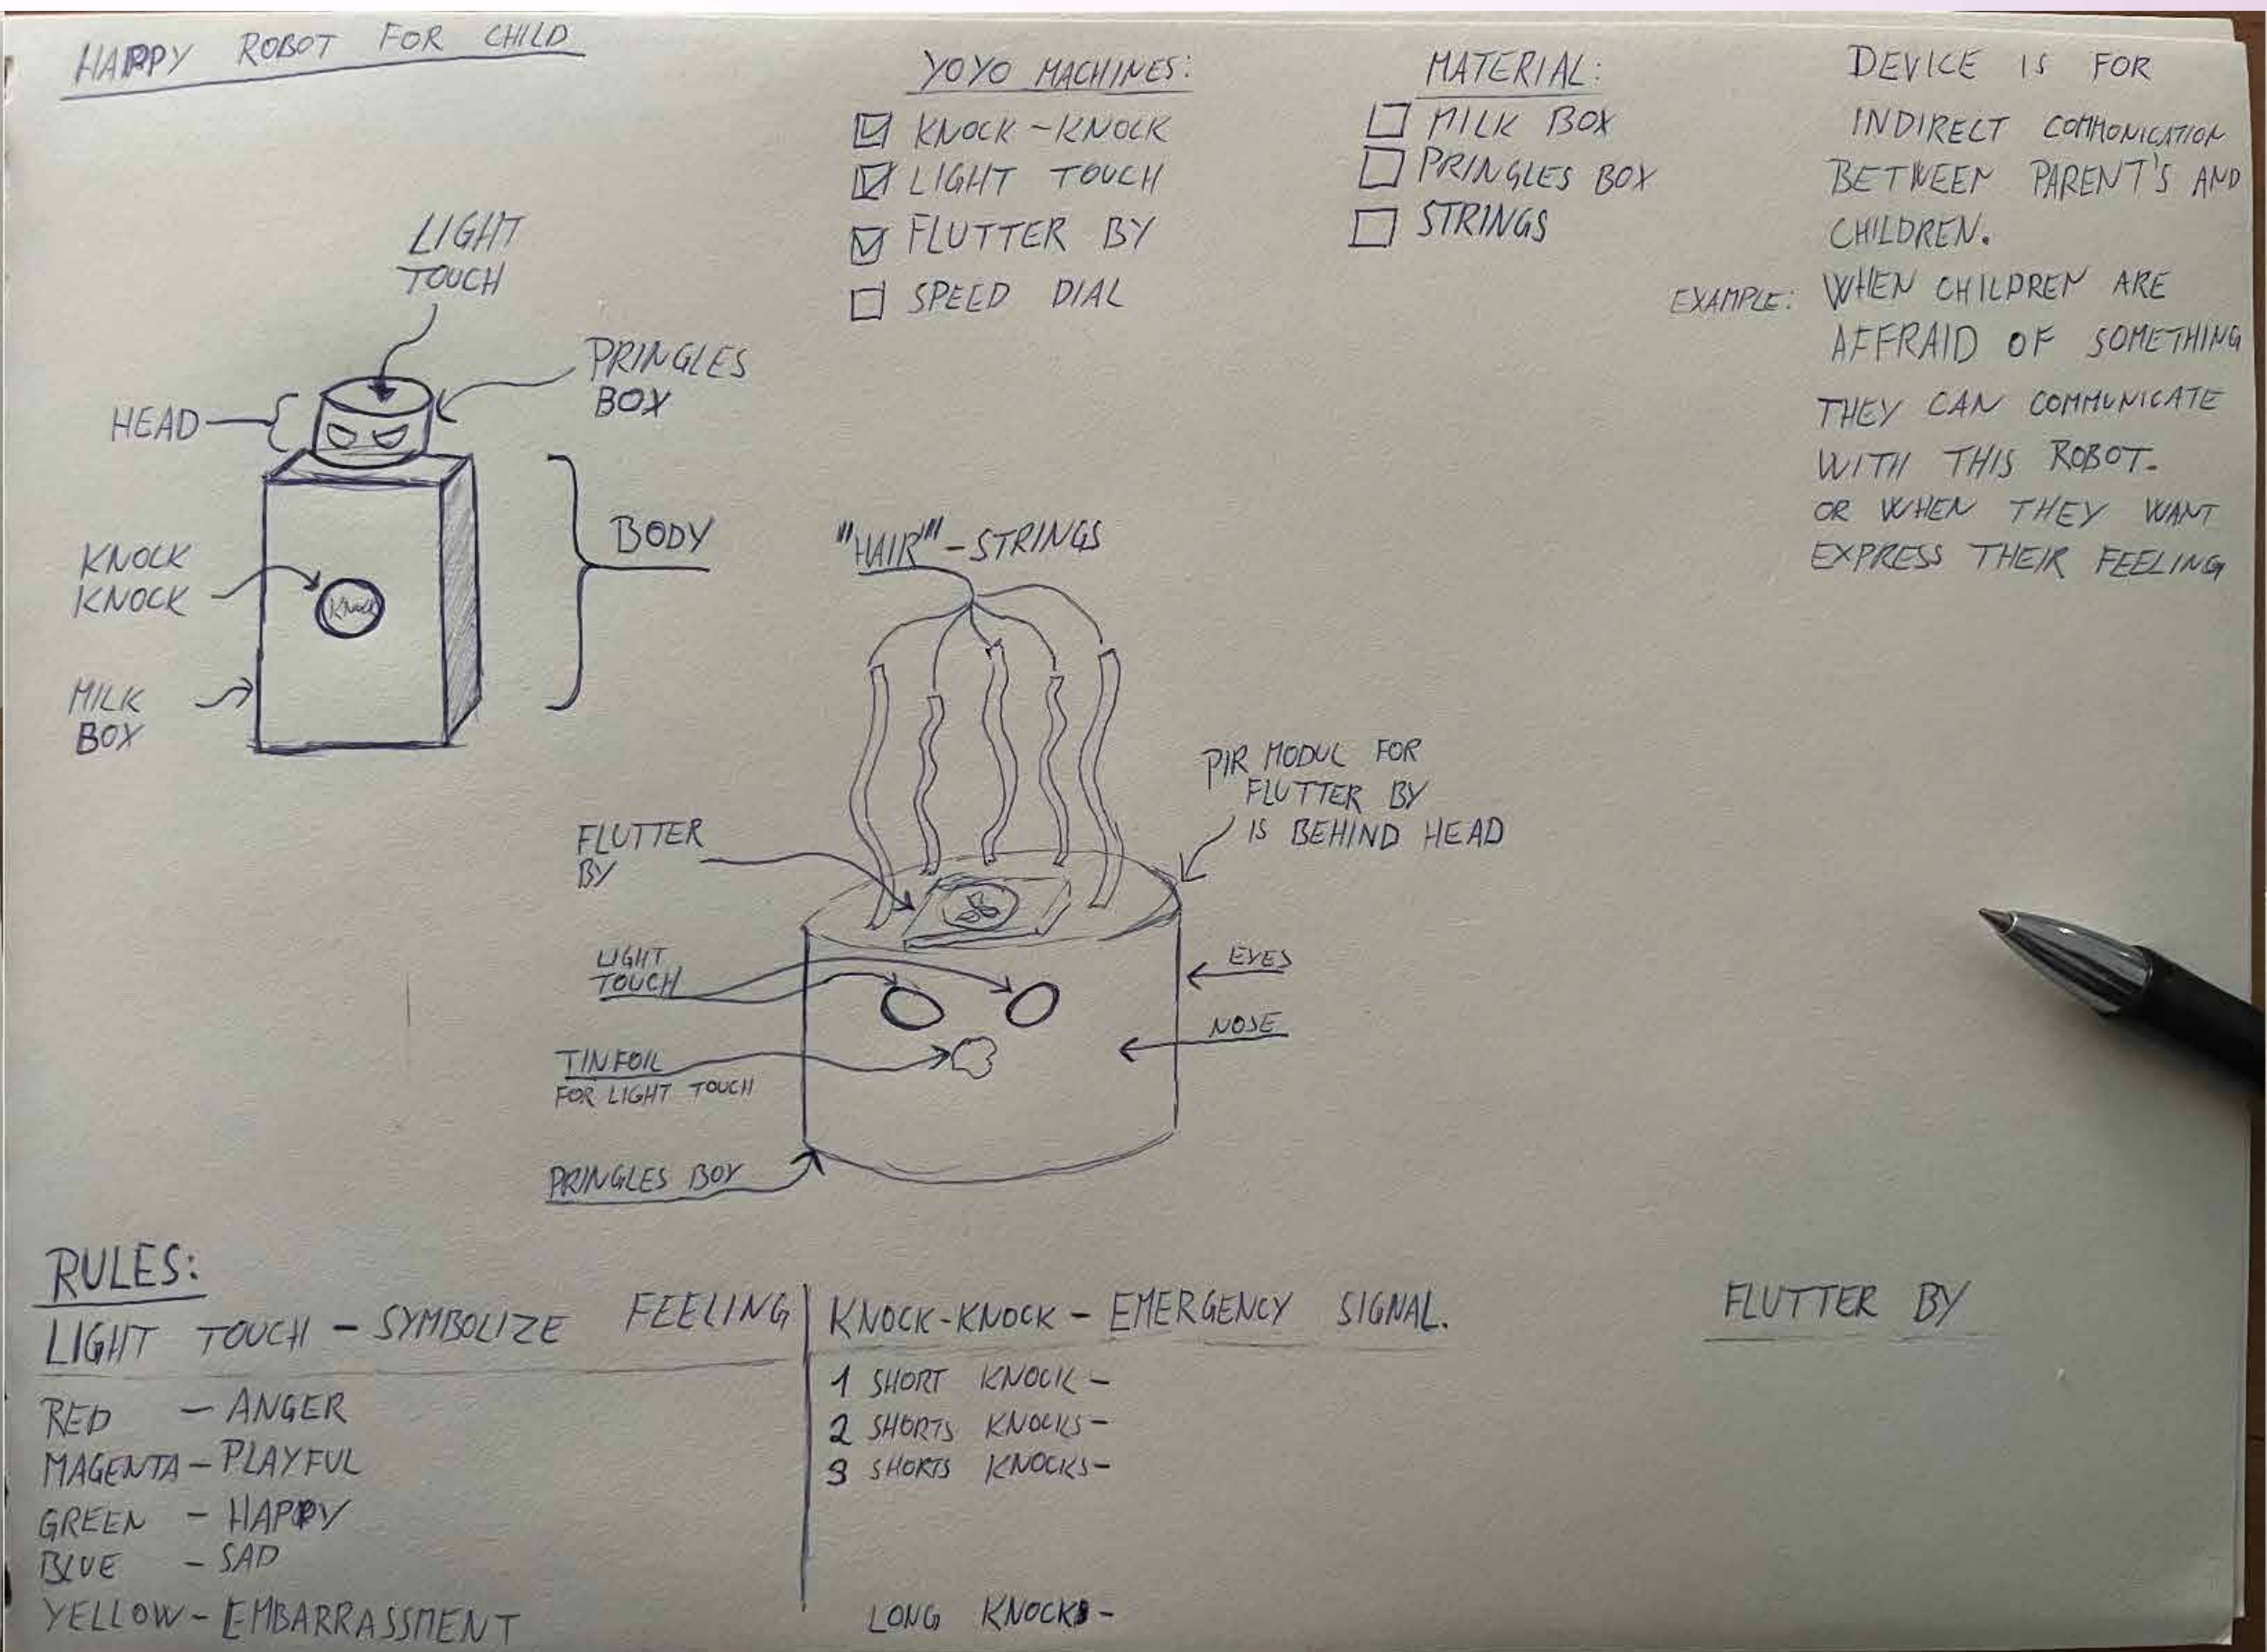 HAPPY ROBOT FOR CHILD
LIGHT
TOUCH
PRINGLES
BOX
HEAD
KNOCK
KNOCK
KNOCK
BODY
MILK
BOX
YOYO MACHINES:
KNOCK-KNOCK
LIGHT TOUCH
FLUTTER BY
SPEED DIAL
MATERIAL:
MILK BOX
PRINGLES BOX
STRINGS
DEVICE IS FOR
INDIRECT COMMONICATION
BETWEEN PARENT'S AND
CHILDREN.
EXAMPLE: WHEN CHILDREN ARE
AFFRAID OF SOMETHING
THEY CAN COMMUNICATE
WITH THIS ROBOT.
OR WHEN THEY WANT
EXPRESS THEIR FEELING
"HAIR" - STRINGS
PIR MODUL FOR
FLUTTER BY
IS BEHIND HEAD
FLUTTER
BY
LIGHT
TOUCH
EYES
NOSE
TINFOIL
FOR LIGHT TOUCH
PRINGLES BOX
RULES:
LIGHT TOUCH - SYMBOLIZE FEELING
RED - ANGER
MAGENTA - PLAYFUL
GREEN - HAPPY
BLUE - SAD
YELLOW - EMBARRASSMENT
KNOCK-KNOCK - EMERGENCY SIGNAL.
1 SHORT KNOCK -
2 SHORTS KNOCKS -
3 SHORTS KNOCKS -
LONG KNOCKS -
FLUTTER BY